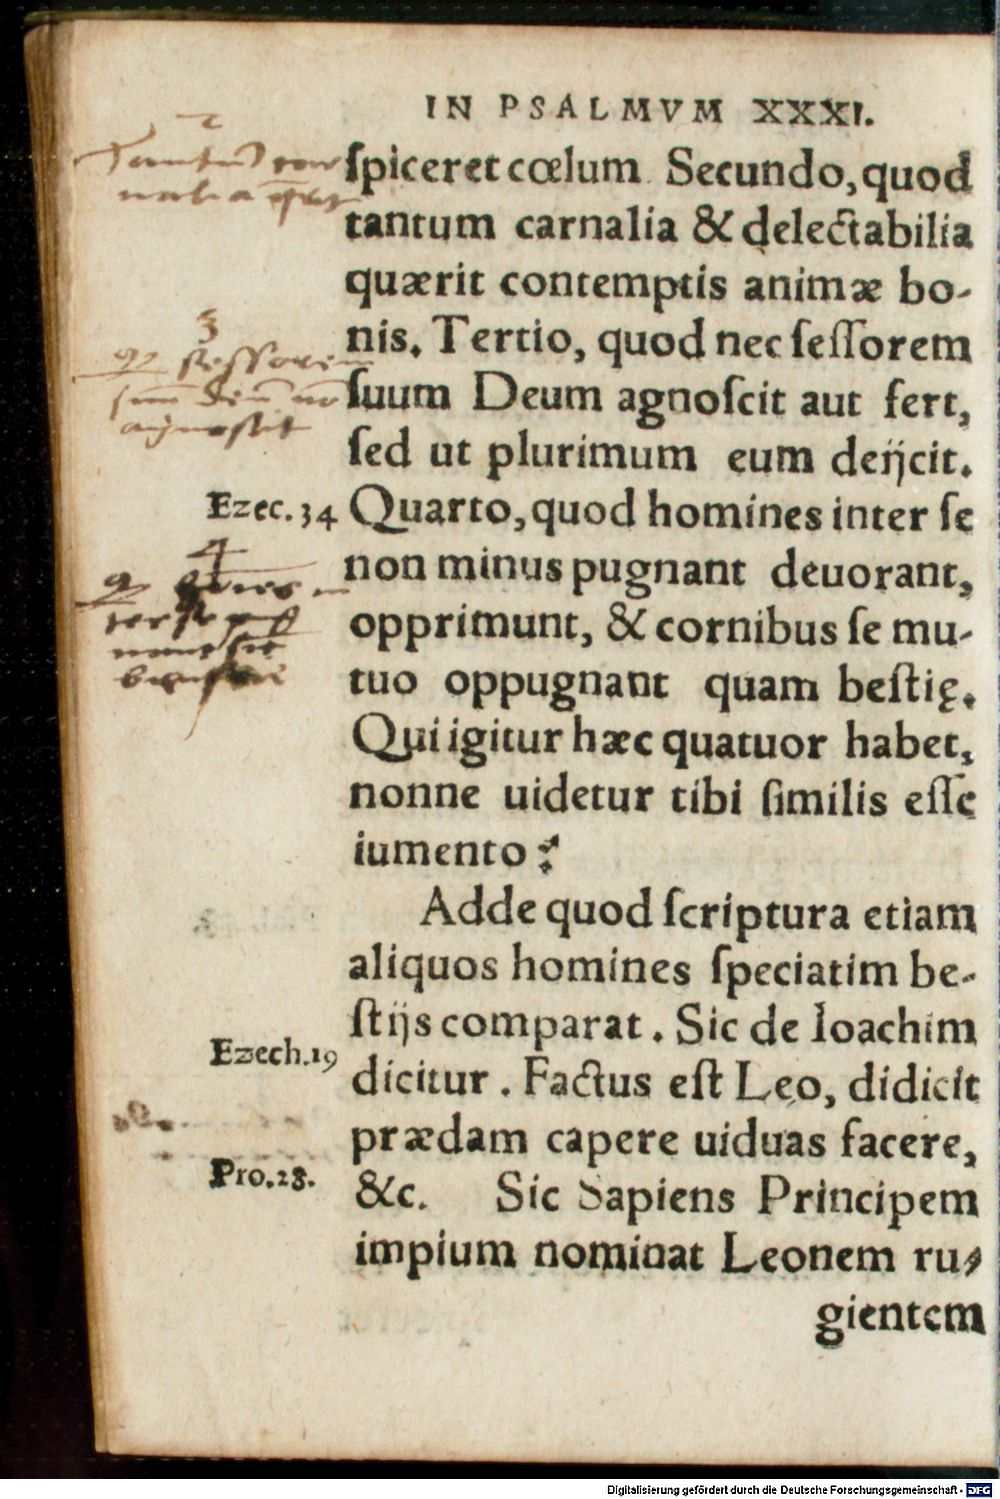 IN PSALMVM XXXI.
2
Tantũ car
nalia
ſpiceret cœlum. Secundo, quod
tantum carnalia & delectabilia
quærit contemptis animæ bo-
nis. Tertio, quod nec ſeſſorem
3
ſeſſorẽ
ſuũ Deũ nõ
agnoſcit
ſuum Deum agnoſcit aut fert,
ſed ut plurimum eum deijcit.
Ezec. 34
Quarto, quod homines inter ſe
4
non minus pugnant deuorant,
opprimunt, & cornibus ſe mu-
tuo oppugnant quam beſtię.
Qui igitur hæc quatuor habet,
nonne uidetur tibi ſimilis eſſe
iumento?
Adde quod ſcriptura etiam
aliquos homines ſpeciatim be-
ſtijs comparat. Sic de Ioachim
Ezech. 19
dicitur. Factus eſt Leo, didicit
prædam capere uiduas facere,
Pro. 28.
&c. Sic Sapiens Principem
impium nominat Leonem ru-
gientem
Digitalisierung gefördert durch die Deutsche Forschungsgemeinschaft - DFG